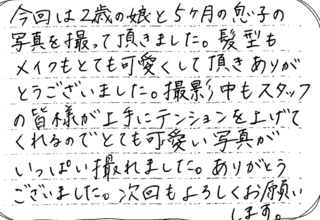 今回は2歳の娘と5ヶ月の息子の
写真を撮って頂きました。髪型も
メイクもとても可愛くして頂きありが
とうございました。撮影中もスタッフ
の皆様が上手にテンションを上げて
くれるのでとても可愛い写真が
いっぱい撮れました。ありがとう
ございました。次回もよろしくお願い
します。